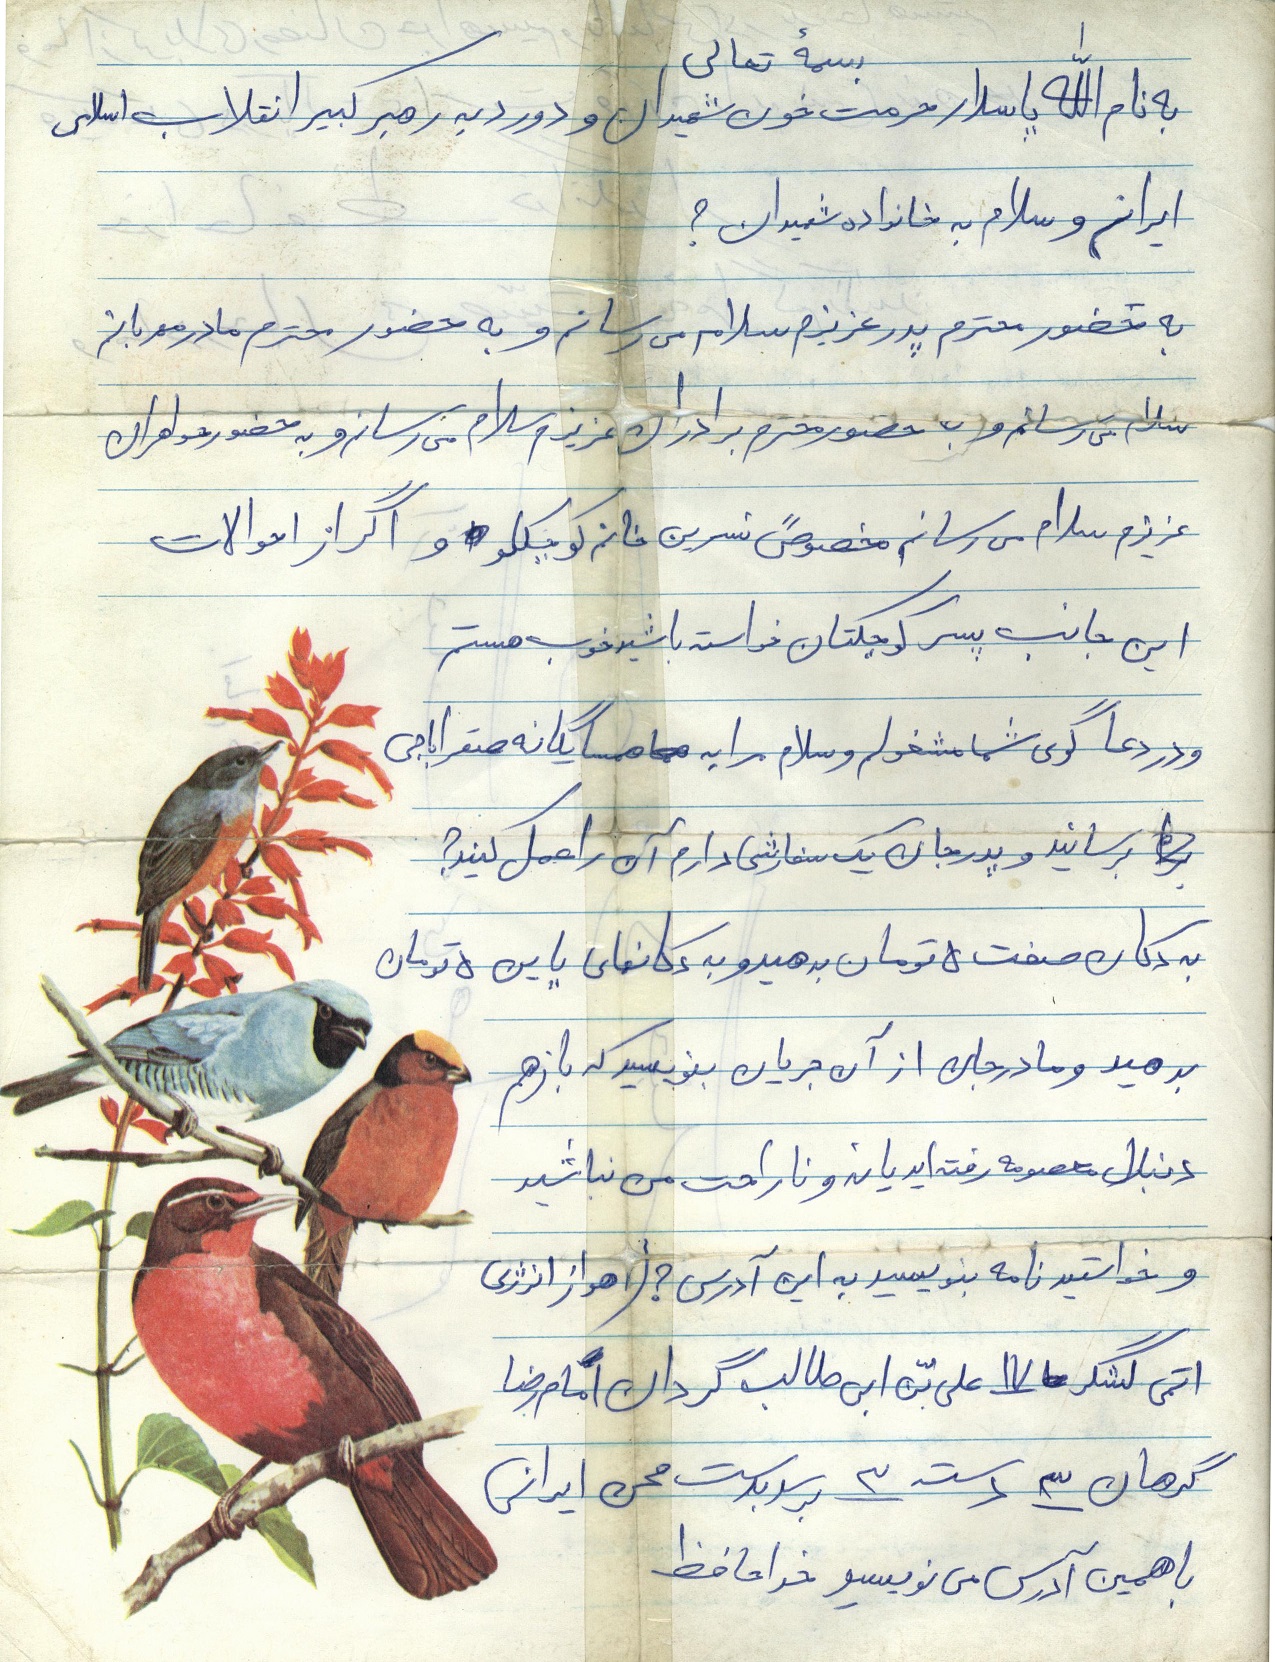 بسمهٔ تعالی
به نام الله پاسدار حرمت خون شهیدان و درود به رهبر کبیر انقلاب اسلامی
ایرانم و سلام به خانواده شهیدان ؟
به حضور محترم پدر عزیزم سلام می رسانم و به حضور محترم مادر مهربانم
سلام می رسانم و به حضور محترم برادران عزیزم سلام می رسانم و به حضور خواهران
عزیزم سلام می رسانم مخصوصاً نسرین خانم کوچکلو و اگر از احوالات
این جانب پسر کوچکتان خواسته باشید خوب هستم
و در دعا گوی شما مشغولم و سلام مرا به همسایگانه
برسانید و پدر جان یک سفارشی دارم آن را عمل کنید؟
به دکان صفت ۵ تومان بدهید و به دکانهای پایین ۵ تومان
بدهید و مادر جان از آن جریان بنویسید که باز هم
دنبال معصومه رفته اید یا نه و ناراحت من نباشید
و خواستید نامه بنویسید به این آدرس ؟ (اهواز انرژی
اتمی لشگر ۱۷ علی بن ابی طالب گردان امام رضا
گرهان ۳ دسته ۳ برسد بدست ایرانی
با همین آدرس می نویسید خداحافظ